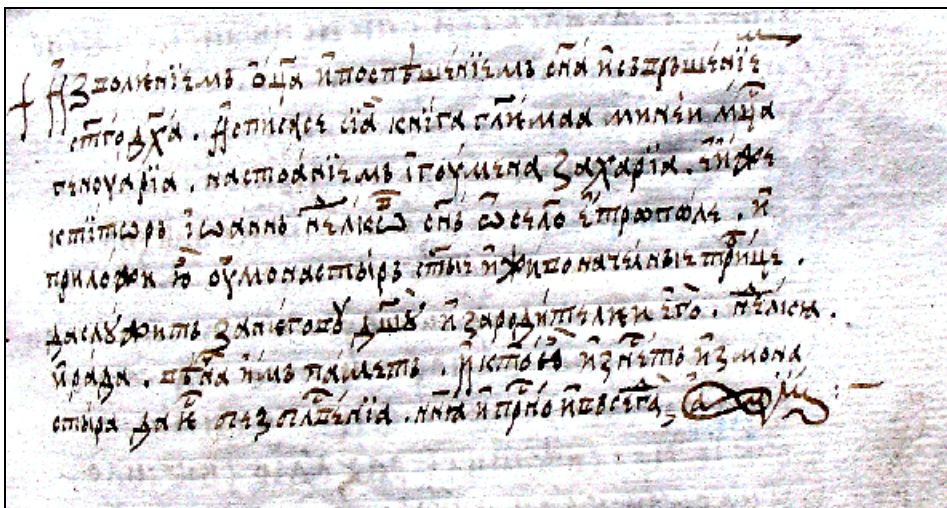 † Изволенїемь ѻ҆ц҃а и҆ поспѣшенїемь сн҃а и҆ съврьшенїе
ст҃го дх҃а . Исписасе сїа книга гл҃емаа минеи мц҃а
генуарїа . настоанїемь їгоумена Захарїа . Еще
ктїторь їѡаннь не҆лкѡв сн҃ь ѿ село е҆трополе . и҆
приложи ю҆ оу монастырь ст҃ые и҆ живоначелные трⷪ҇ице .
да слꙋжить за него вꙋ дш҃ꙋ и҆ за родителки е҆го . не҆лкꙗ .
и҆ рада . вѣчна и҆мь паметь . И҆ кто ю҆ и҆знеть и҆з мона
стыра да е҆ без благⷭ҇венїа . нн҃ꙗ и҆ прⷭ҇но и҆ въ вѣки аминь :~